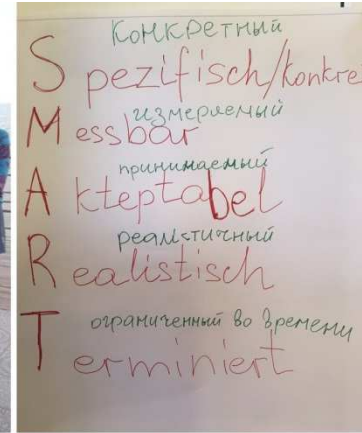 Конкретный
Spezifisch/konkre
измеряемый
Messbar
принимаемый
Akteptabel
реалистичный
Realistisch
ограниченный во времени
Terminiert